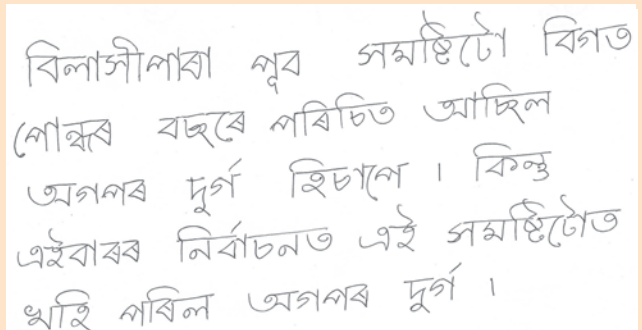 বিলাসীপাৰা পূব সমষ্টিটো বিগত
পোন্ধৰ বছৰে পৰিচিত আছিল
অগপৰ দুৰ্গ হিচাপে । কিন্তু
এইবাৰৰ নিৰ্বাচনত এই সমষ্টিটোত
খহি পৰিল অগপৰ দুৰ্গ ।